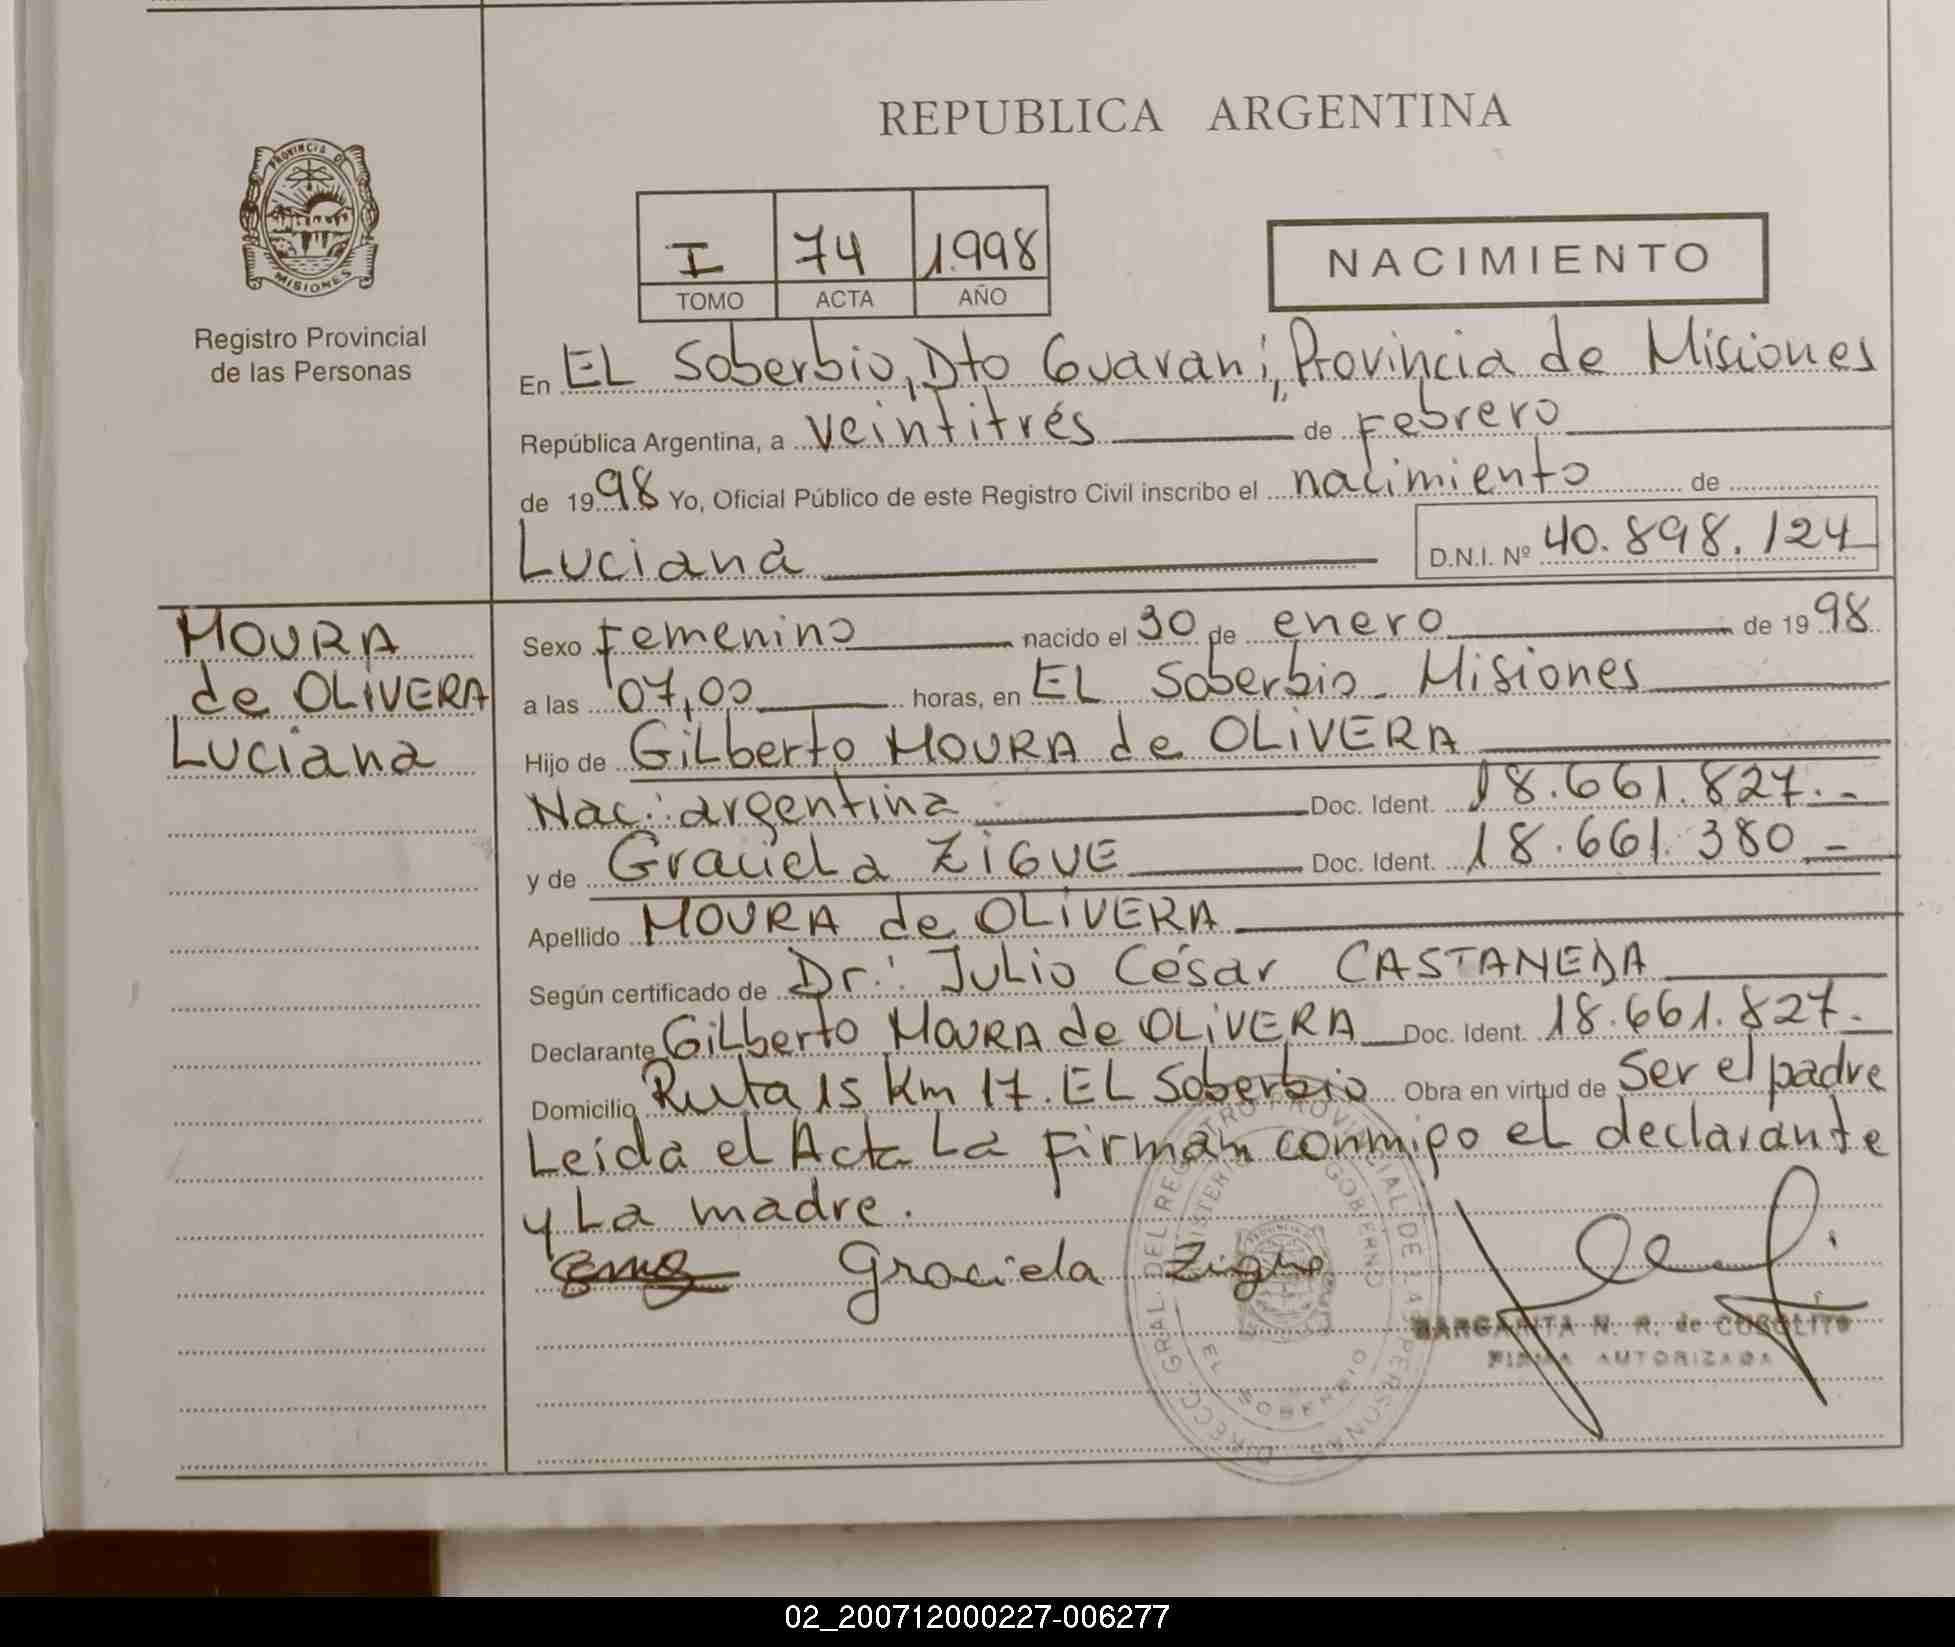 REPUBLICA ARGENTINA
PROVINCIA DE
MISIONES
Registro Provincial
de las Personas
I 74 1.998
TOMO ACTA AÑO
NACIMIENTO
En EL Soberbio, Dto Guaraní, Provincia de Misiones
República Argentina, a veintitrés de Febrero
de 1998 Yo, Oficial Público de este Registro Civil inscribo el nacimiento de
Luciana D.N.I. Nº 40.898.124
MOURA
de OLIVERA
Luciana
Sexo Femenino nacido el 30 de enero de 1998
a las 07,00 horas, en EL Soberbio - Misiones
Hijo de Gilberto MOURA de OLIVERA
Nac: argentina Doc. Ident. 18.661.827.-
y de Graciela ZIGUE Doc. Ident. 18.661.380 -
Apellido MOURA de OLIVERA
Según certificado de Dr: Julio César CASTANEDA
Declarante Gilberto MOURA de OLIVERA Doc. Ident. 18.661.827.
Domicilio Ruta 15 Km 17. EL Soberbio Obra en virtud de Ser el padre
Leída el Acta La firman conmigo el declarante
y La madre.
Graciela Zigue
MARGARITA N. R. de
FIRMA AUTORIZADA
DIRECC. GRAL. DEL REGISTRO PROVINCIAL DE LAS PERSONAS
MINISTERIO GOBIERNO
EL SOBERBIO
02_200712000227-006277